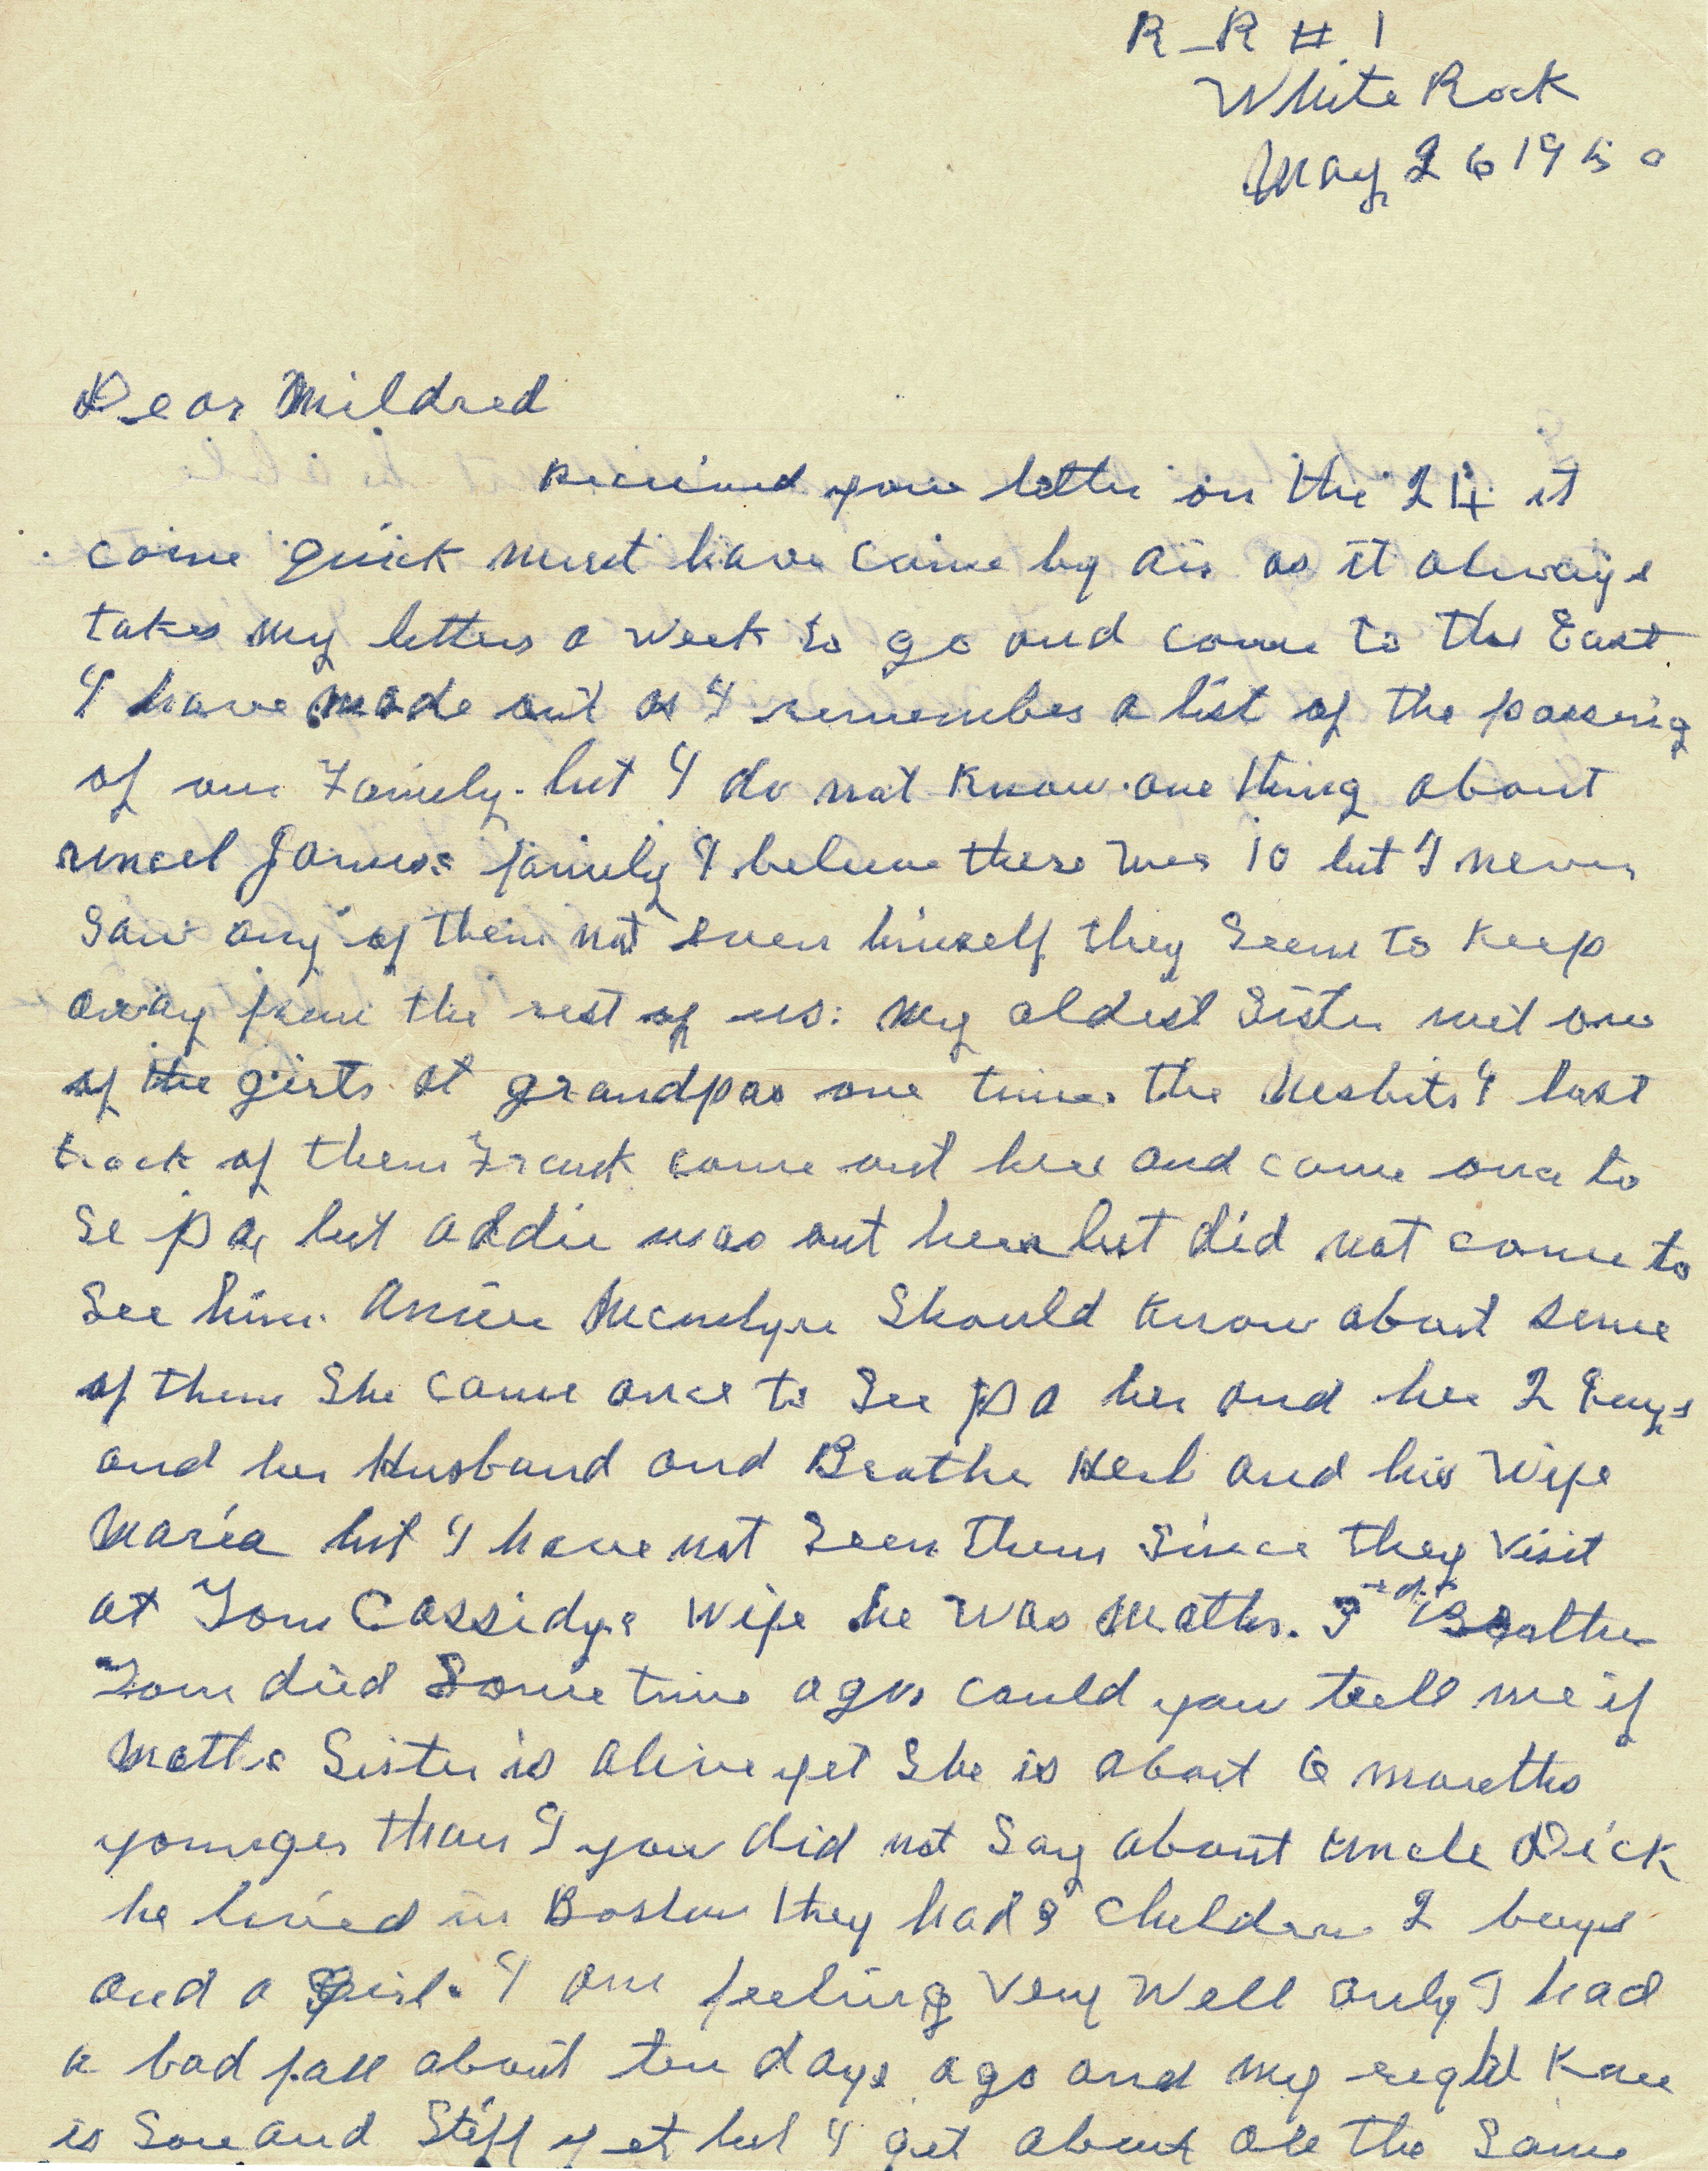 R-R # 1
White Rock
May 26 1950
Dear Mildred
Received your letter on the 24 it
come quick must have came by air as it always
takes my letters a week to go and come to the East
I have made out as I remember a list of the passing
of our Family. but I do not know one thing about
James family I believe there was 10 but I never
saw any of them not even himself they seem to keep
away from the rest of us: my oldest Sister met one
of the girls at grandpas one time. the Nesbits I lost
track of them Frank come out here and came once to
se pa, but addie was out here but did not come to
See him. Annie Mcentyre Should know about some
of them She came once to See pa her and her 2 boys
and her Husband and Brother Herb and his Wife
Maria but I have not Seen them Since they visit
at Tom Cassidys Wife he was Moths. 3rd Brother
Tom died Some time ago could you teell me if
Moths Sister is alive yet She is about 6 months
younger than I you did not Say about Uncle Dick
he lived in Boston they had 3 Children 2 boys
and a Girl. I am feeling very well only I had
a bad fall about ten days ago and my right Knee
is Sore and Stiff yet but I get about all the Same